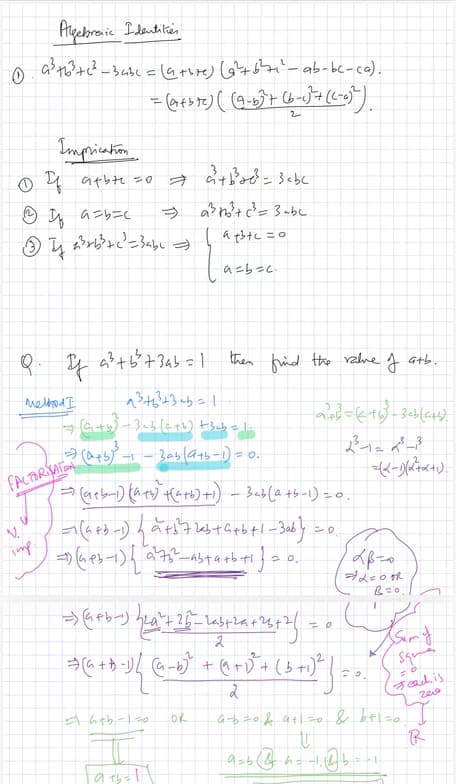 Algebraic Identities
① a³+b³+c³-3abc = (a+b+c) (a²+b²+c²-ab-bc-ca).
= (a+b+c) ( (a-b)²+(b-c)²+(c-a)² / 2 ).
Implication
① If a+b+c=0 ⇒ a³+b³+c³=3abc
② If a=b=c ⇒ a³+b³+c³=3abc
③ If a³+b³+c³=3abc ⇒ { a+b+c=0
a=b=c.
Q. If a³+b³+3ab=1 then find the value of a+b.
Method I a³+b³+3ab=1
a³+b³=(a+b)³-3ab(a+b).
⇒ (a+b)³-3ab(a+b)+3ab=1.
α³-1=α³-1³
⇒ (a+b)³-1-3ab(a+b-1)=0.
=(α-1)(α²+α+1).
FACTORISATION
V. imp
⇒ (a+b-1)((a+b)²+(a+b)+1)-3ab(a+b-1)=0.
⇒ (a+b-1){a²+b²+2ab+a+b+1-3ab}=0.
⇒ (a+b-1){a²+b²-ab+a+b+1}=0.
αβ=0
⇒α=0 OR
β=0.
⇒ (a+b-1){2a²+2b²-2ab+2a+2b+2 / 2}=0
Sum of
squares
=0
⇒ each is
zero
IR
⇒ (a+b-1){(a-b)²+(a+1)²+(b+1)² / 2}=0.
⇒ a+b-1=0 OR a-b=0 & a+1=0 & b+1=0.
a=b & a=-1, & b=-1
a+b=1